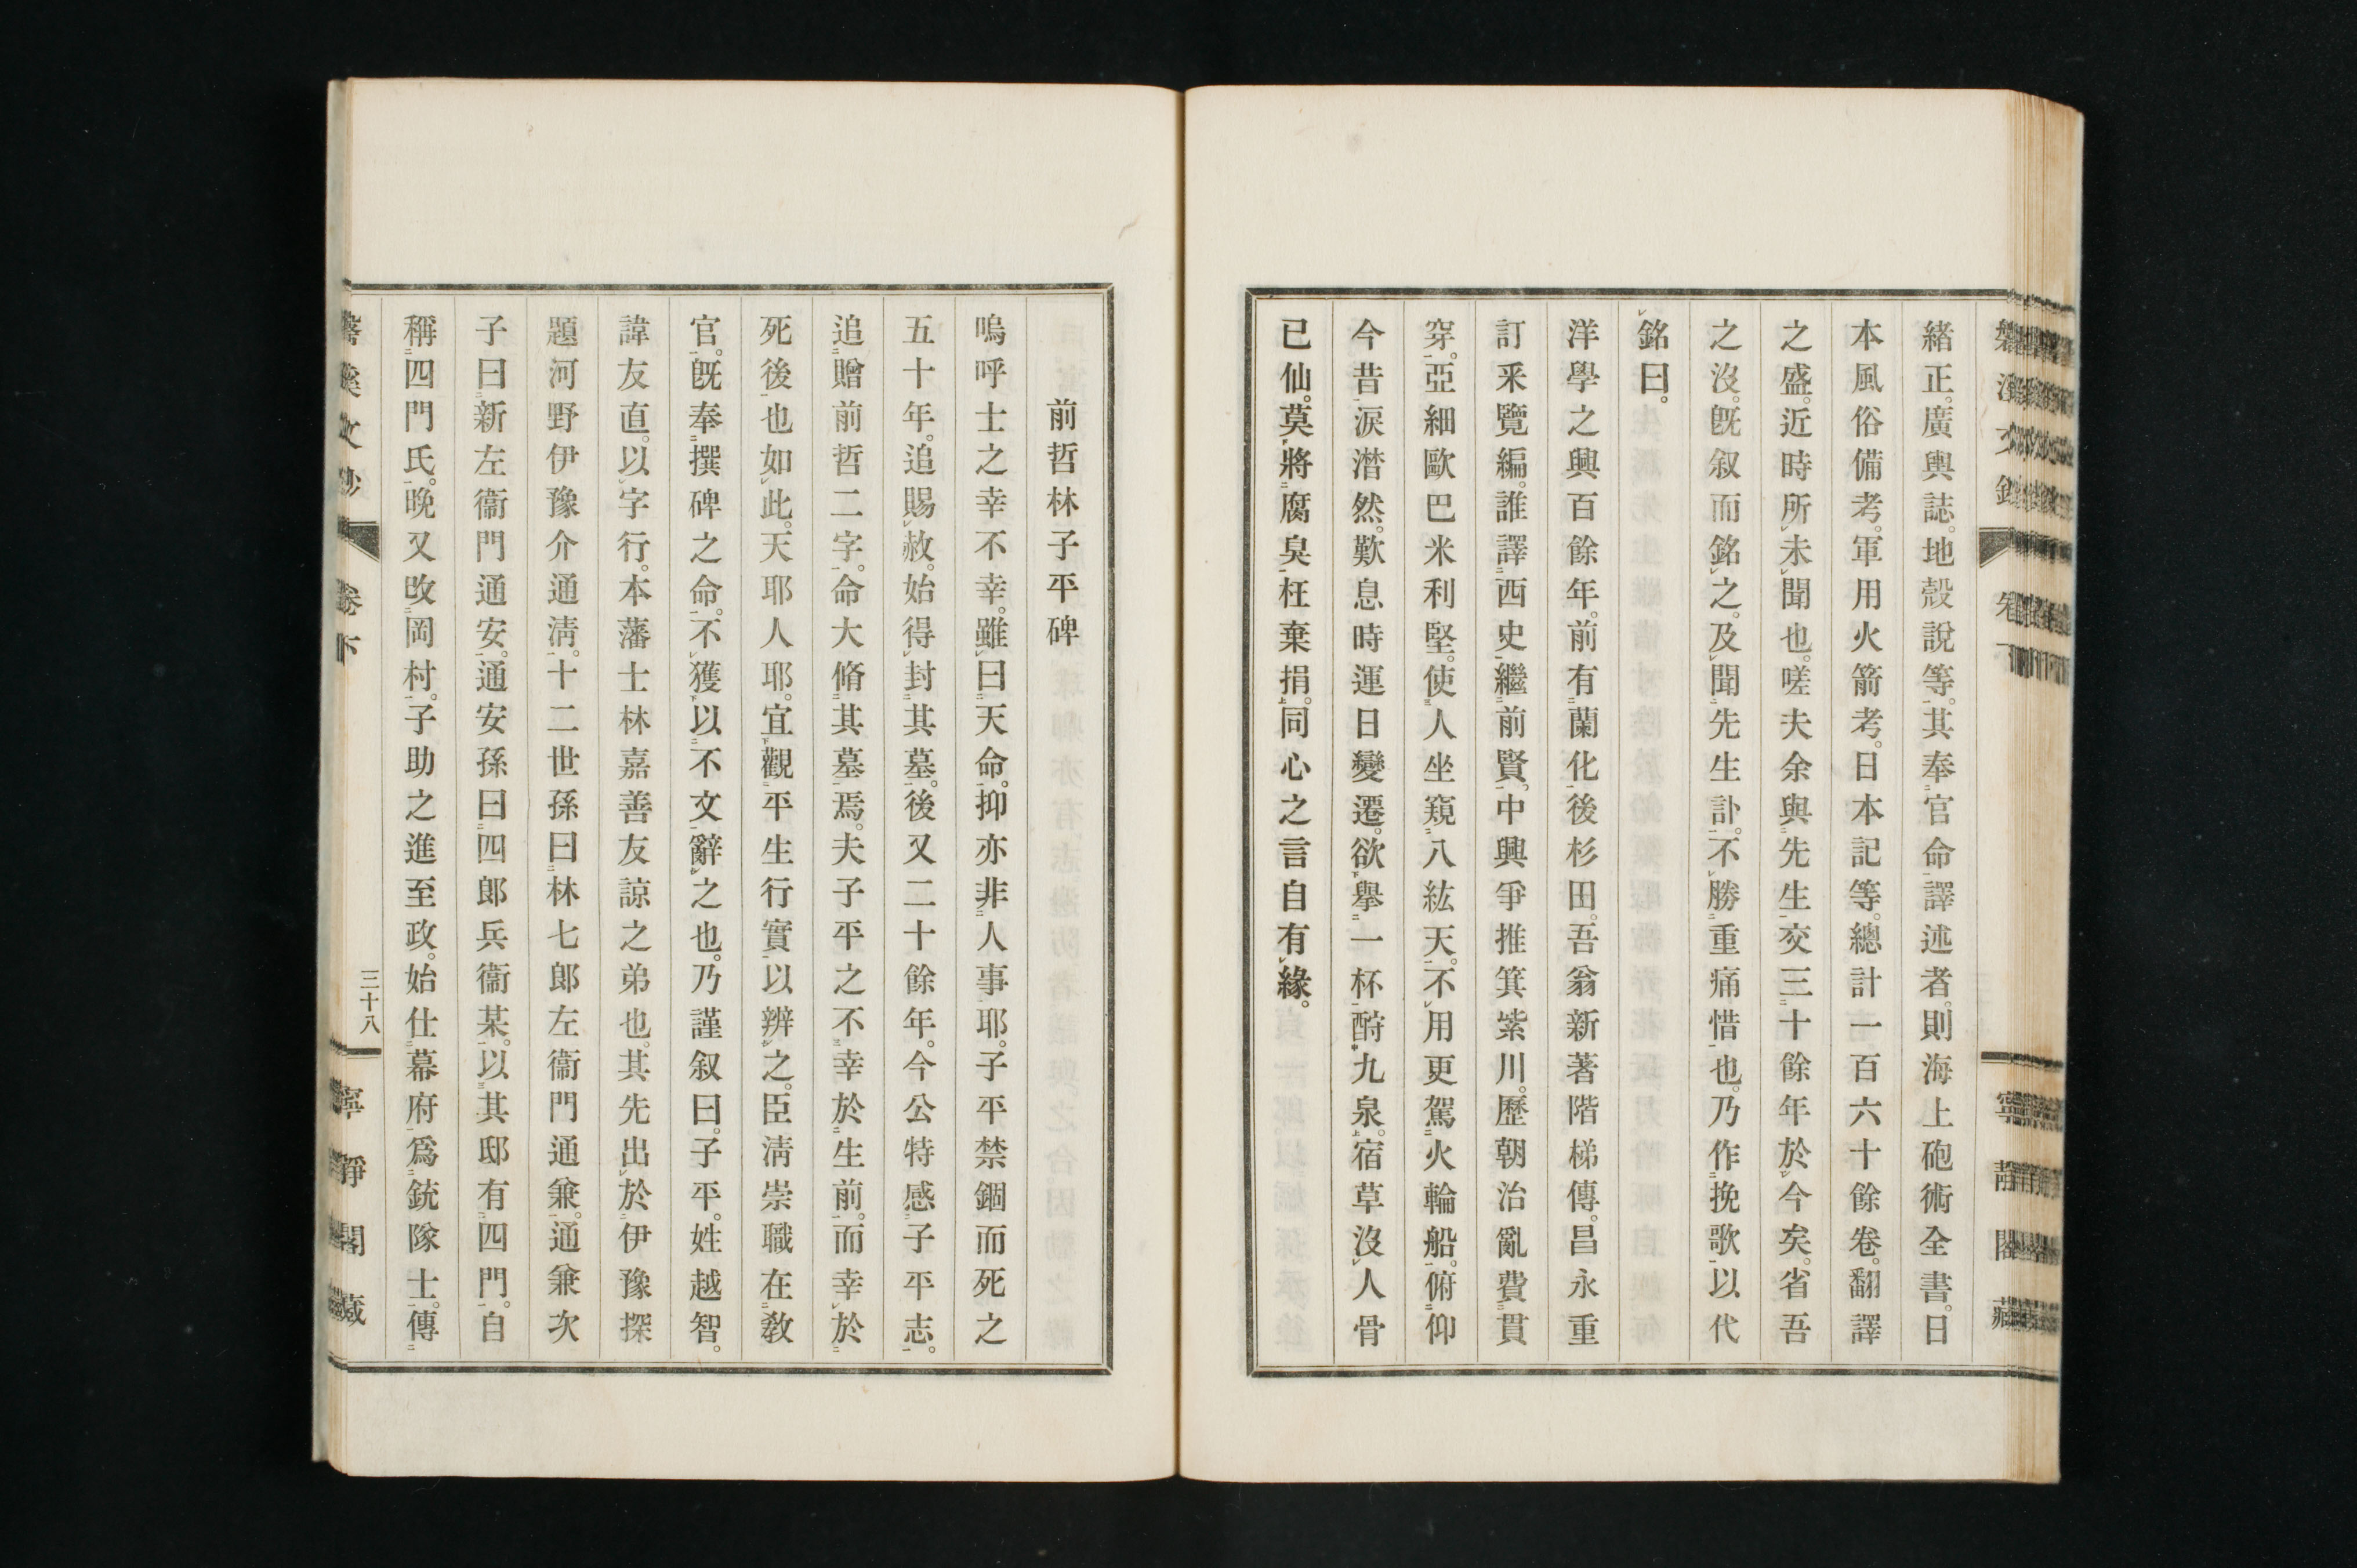 緒正。廣輿誌。地殼說等。其奉官命譯述者。則海上砲術全書。日
本風俗備考。軍用火箭考。日本記等。總計一百六十餘卷。翻譯
之盛。近時所未聞也。嗟夫余與先生交三十餘年於今矣。省吾
之沒。既叙而銘之。及聞先生訃。不勝重痛惜也。乃作挽歌以代
銘曰。
洋學之興百餘年。前有蘭化後杉田。吾翁新著階梯傳。昌永重
訂釆覽編。誰譯西史繼前賢。中興爭推箕紫川。歷朝治亂費貫
穿。亞細歐巴米利堅。使人坐窺八紘天。不用更駕火輪船。俯仰
今昔淚潸然。歎息時運日變遷。欲擧一杯酹九泉。宿草沒人骨
已仙。莫將腐臭枉棄捐。同心之言自有緣。
前哲林子平碑
嗚呼士之幸不幸。雖曰天命。抑亦非人事耶。子平禁錮而死之
五十年。追賜赦。始得封其墓。後又二十餘年。今公特感子平志。
追贈前哲二字。命大脩其墓焉。夫子平之不幸於生前。而幸於
死後也如此。天耶人耶。宜觀平生行實以辨之。臣淸崇職在敎
官。既奉撰碑之命。不獲以不文辭之也。乃謹叙曰。子平。姓越智。
諱友直。以字行。本藩士林嘉善友諒之弟也。其先出於伊豫探
題河野伊豫介通淸。十二世孫曰林七郎左衞門通兼。通兼次
子曰新左衞門通安。通安孫曰四郎兵衞某。以其邸有四門。自
稱四門氏。晩又改岡村。子助之進至政。始仕幕府爲銃隊士。傳
卷下
三十八
寧靜閣藏